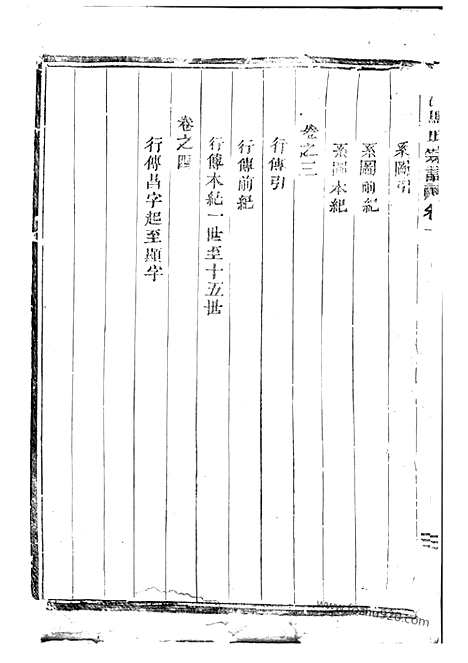 氏宗譜卷
系圖引
系圖前紀
系圖本紀
卷之三
行傳引
行傳前紀
行傳本紀一世至十五世
卷之四
行傳昌字起至顯字